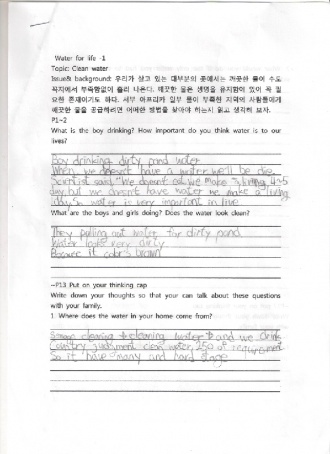 Water for life -1
Topic: Clean water
Issue& background: 우리가 살고 있는 대부분의 곳에서는 깨끗한 물이 수도
꼭지에서 부족함없이 흘러 나온다. 깨끗한 물은 생명을 유지함이 있어 꼭 필
요한 존재이기도 하다. 서부 아프리카 일부 물이 부족한 지역의 사람들에게
깨끗한 물을 공급하려면 어떠한 방법을 찾아야 하는지 읽고 생각해 보자.
P1~2
What is the boy drinking? How important do you think water is to our
lives?
Boy drinking dirty pond water
When we doesn't have a water we'll be die
Scientist said, "We doesn't eat we make living 4~5
day but we doesn't have water we make a living
day. So water is very important on live
What are the boys and girls doing? Does the water look clean?
They pulling out water the dirty pond
Water looks very dirty
Because it color's brown
~P13 Put on your thinking cap
Write down your thoughts so that your can talk about these questions
with your family.
1. Where does the water in your home come from?
cleaning water and we drink
Country judgment clean water, 250 of requirement
So it have many and hard stage